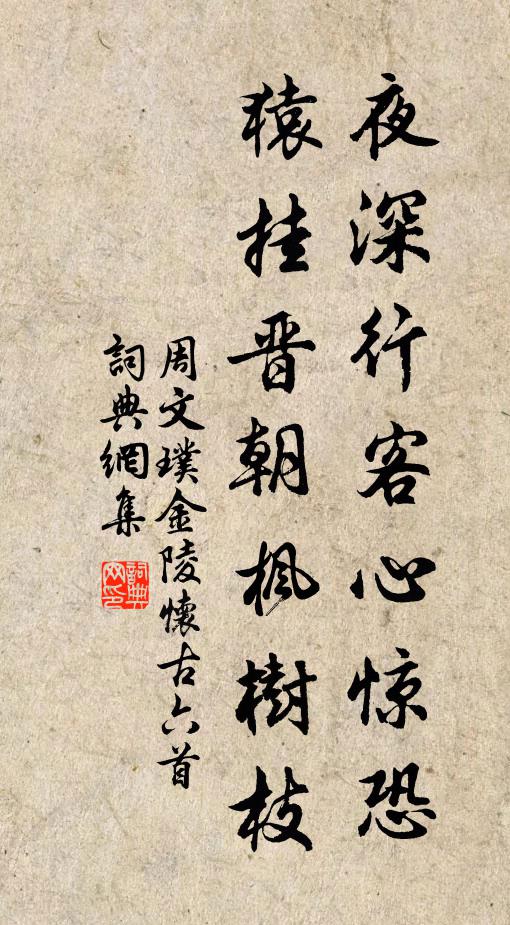 夜深行客心惊恐
猿挂晋朝枫樹枝
周文璞金陵懷古六首
詞典網集
詞典网印